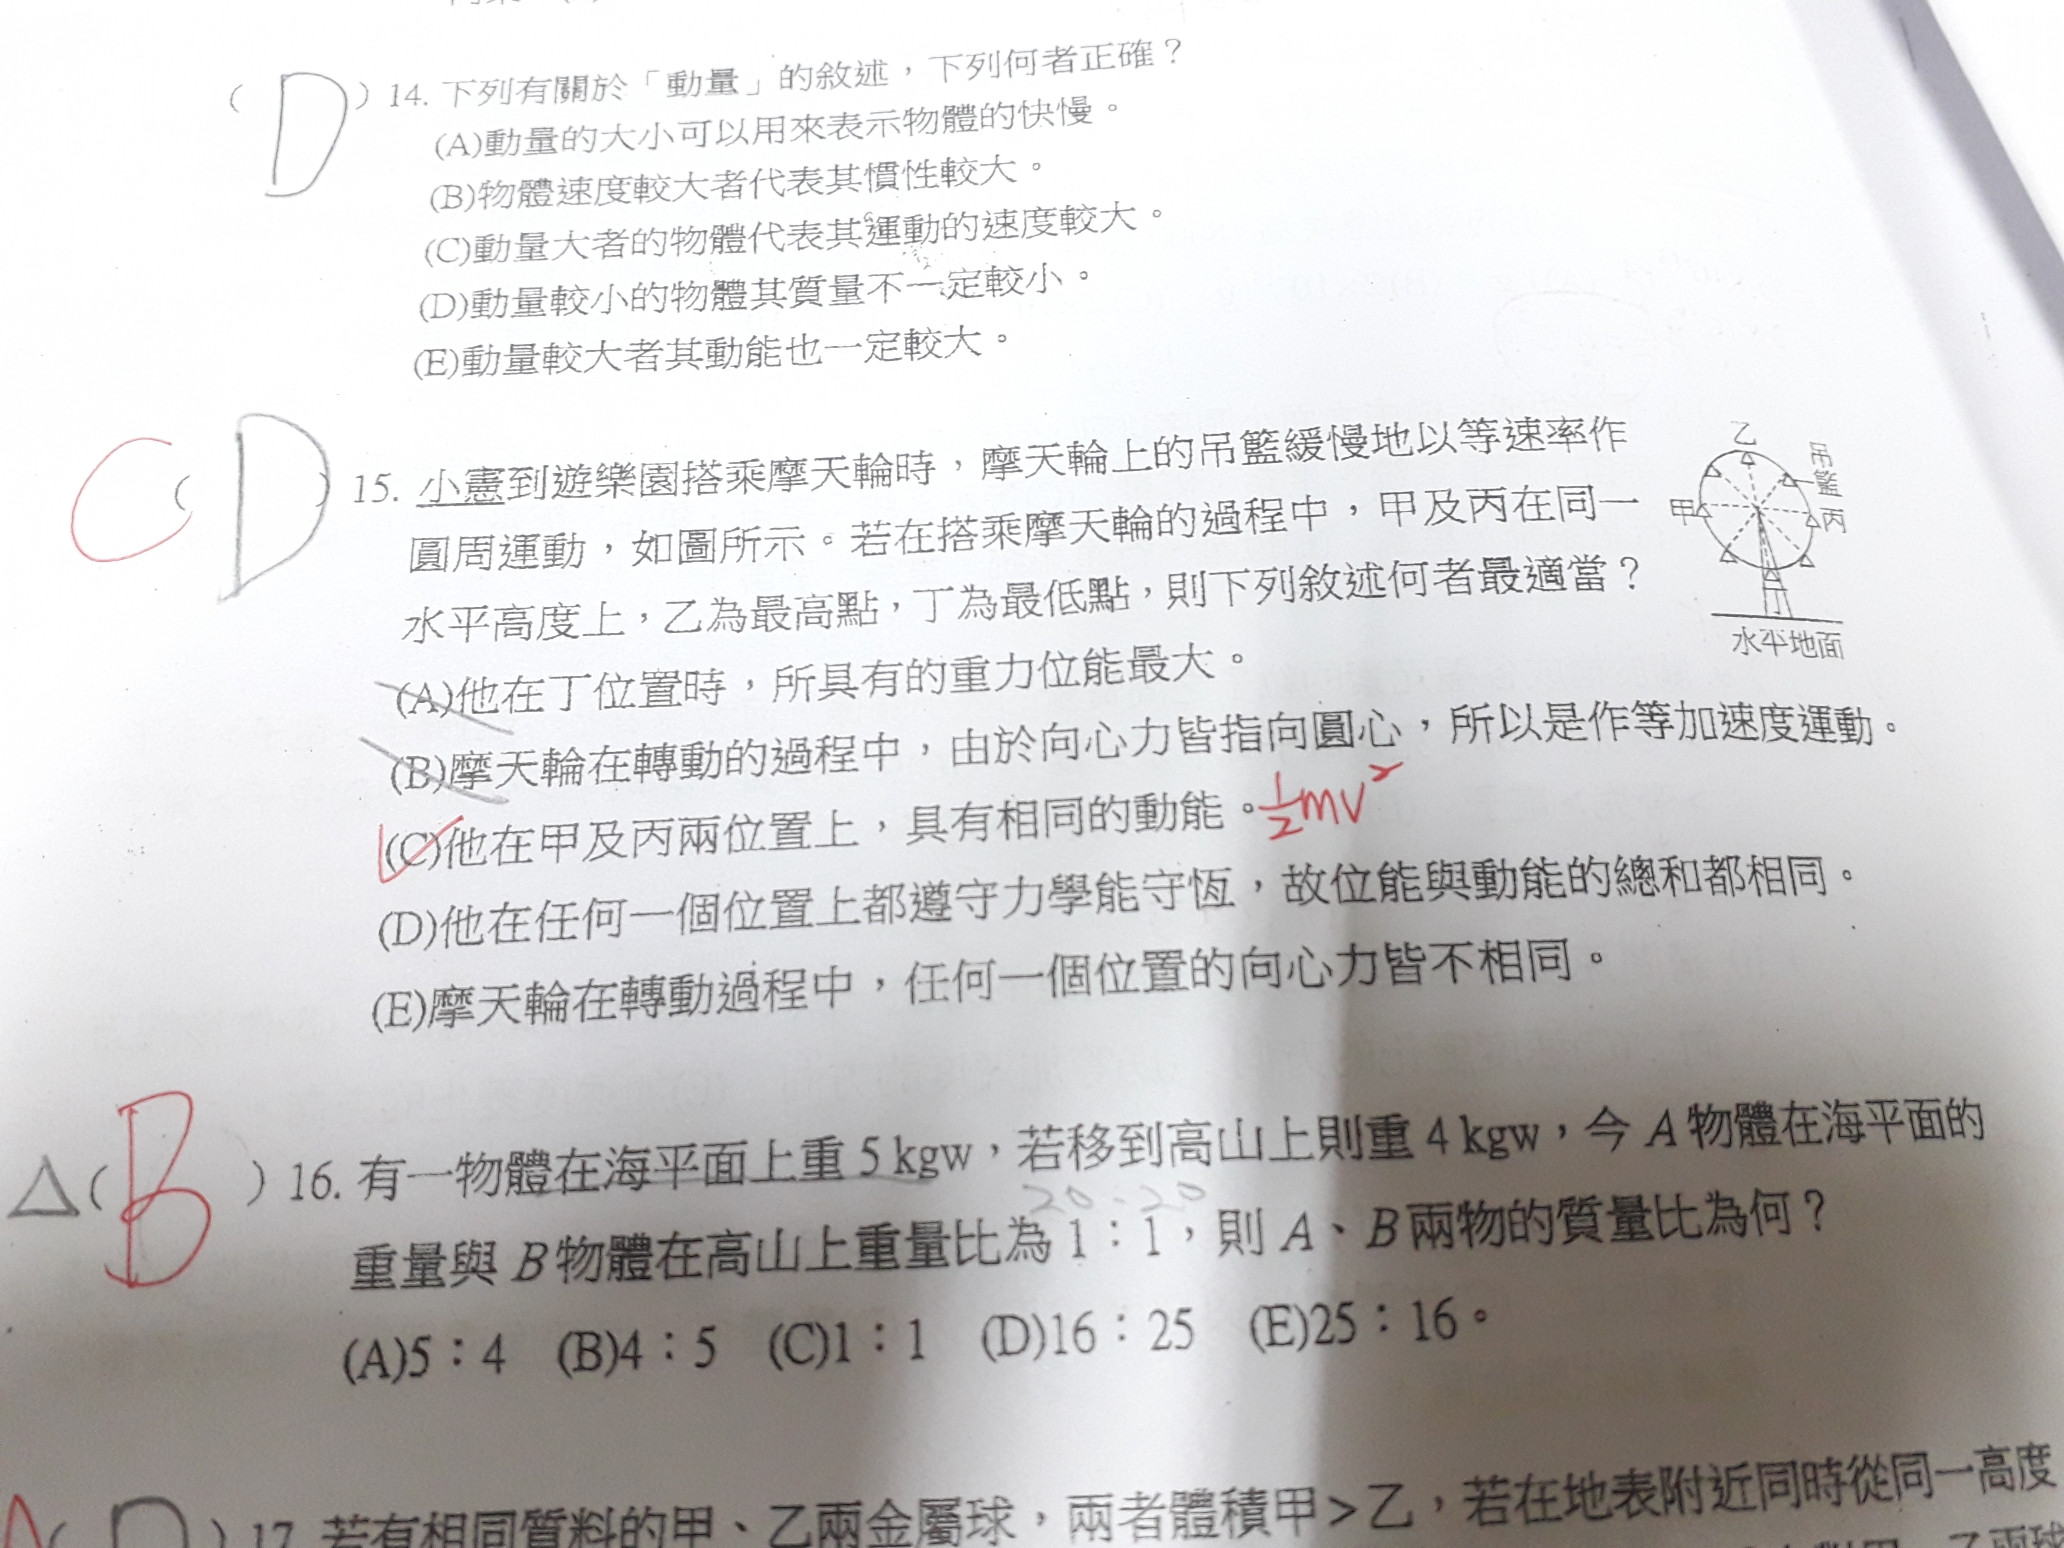 ( D )14. 下列有關於「動量」的敘述，下列何者正確？
(A)動量的大小可以用來表示物體的快慢。
(B)物體速度較大者代表其慣性較大。
(C)動量大者的物體代表其運動的速度較大。
(D)動量較小的物體其質量不一定較小。
(E)動量較大者其動能也一定較大。
C ( D )15. 小憲到遊樂園搭乘摩天輪時，摩天輪上的吊籃緩慢地以等速率作
圓周運動，如圖所示。若在搭乘摩天輪的過程中，甲及丙在同一
水平高度上，乙為最高點，丁為最低點，則下列敘述何者最適當？
乙
吊籃
甲
丙
水平地面
(A)他在丁位置時，所具有的重力位能最大。
(B)摩天輪在轉動的過程中，由於向心力皆指向圓心，所以是作等加速度運動。
(C)他在甲及丙兩位置上，具有相同的動能。½mv²
(D)他在任何一個位置上都遵守力學能守恆，故位能與動能的總和都相同。
(E)摩天輪在轉動過程中，任何一個位置的向心力皆不相同。
△( B )16. 有一物體在海平面上重 5 kgw，若移到高山上則重 4 kgw，今 A 物體在海平面的
20:20
重量與 B 物體在高山上重量比為 1：1，則 A、B 兩物的質量比為何？
(A)5：4 (B)4：5 (C)1：1 (D)16：25 (E)25：16。
)17. 若有相同質料的甲、乙兩金屬球，兩者體積甲>乙，若在地表附近同時從同一高度